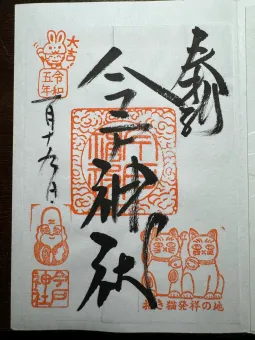 奉拝
今戸神社
大吉
令和
五年
一月十六日
今戸
神社
招き猫発祥の地